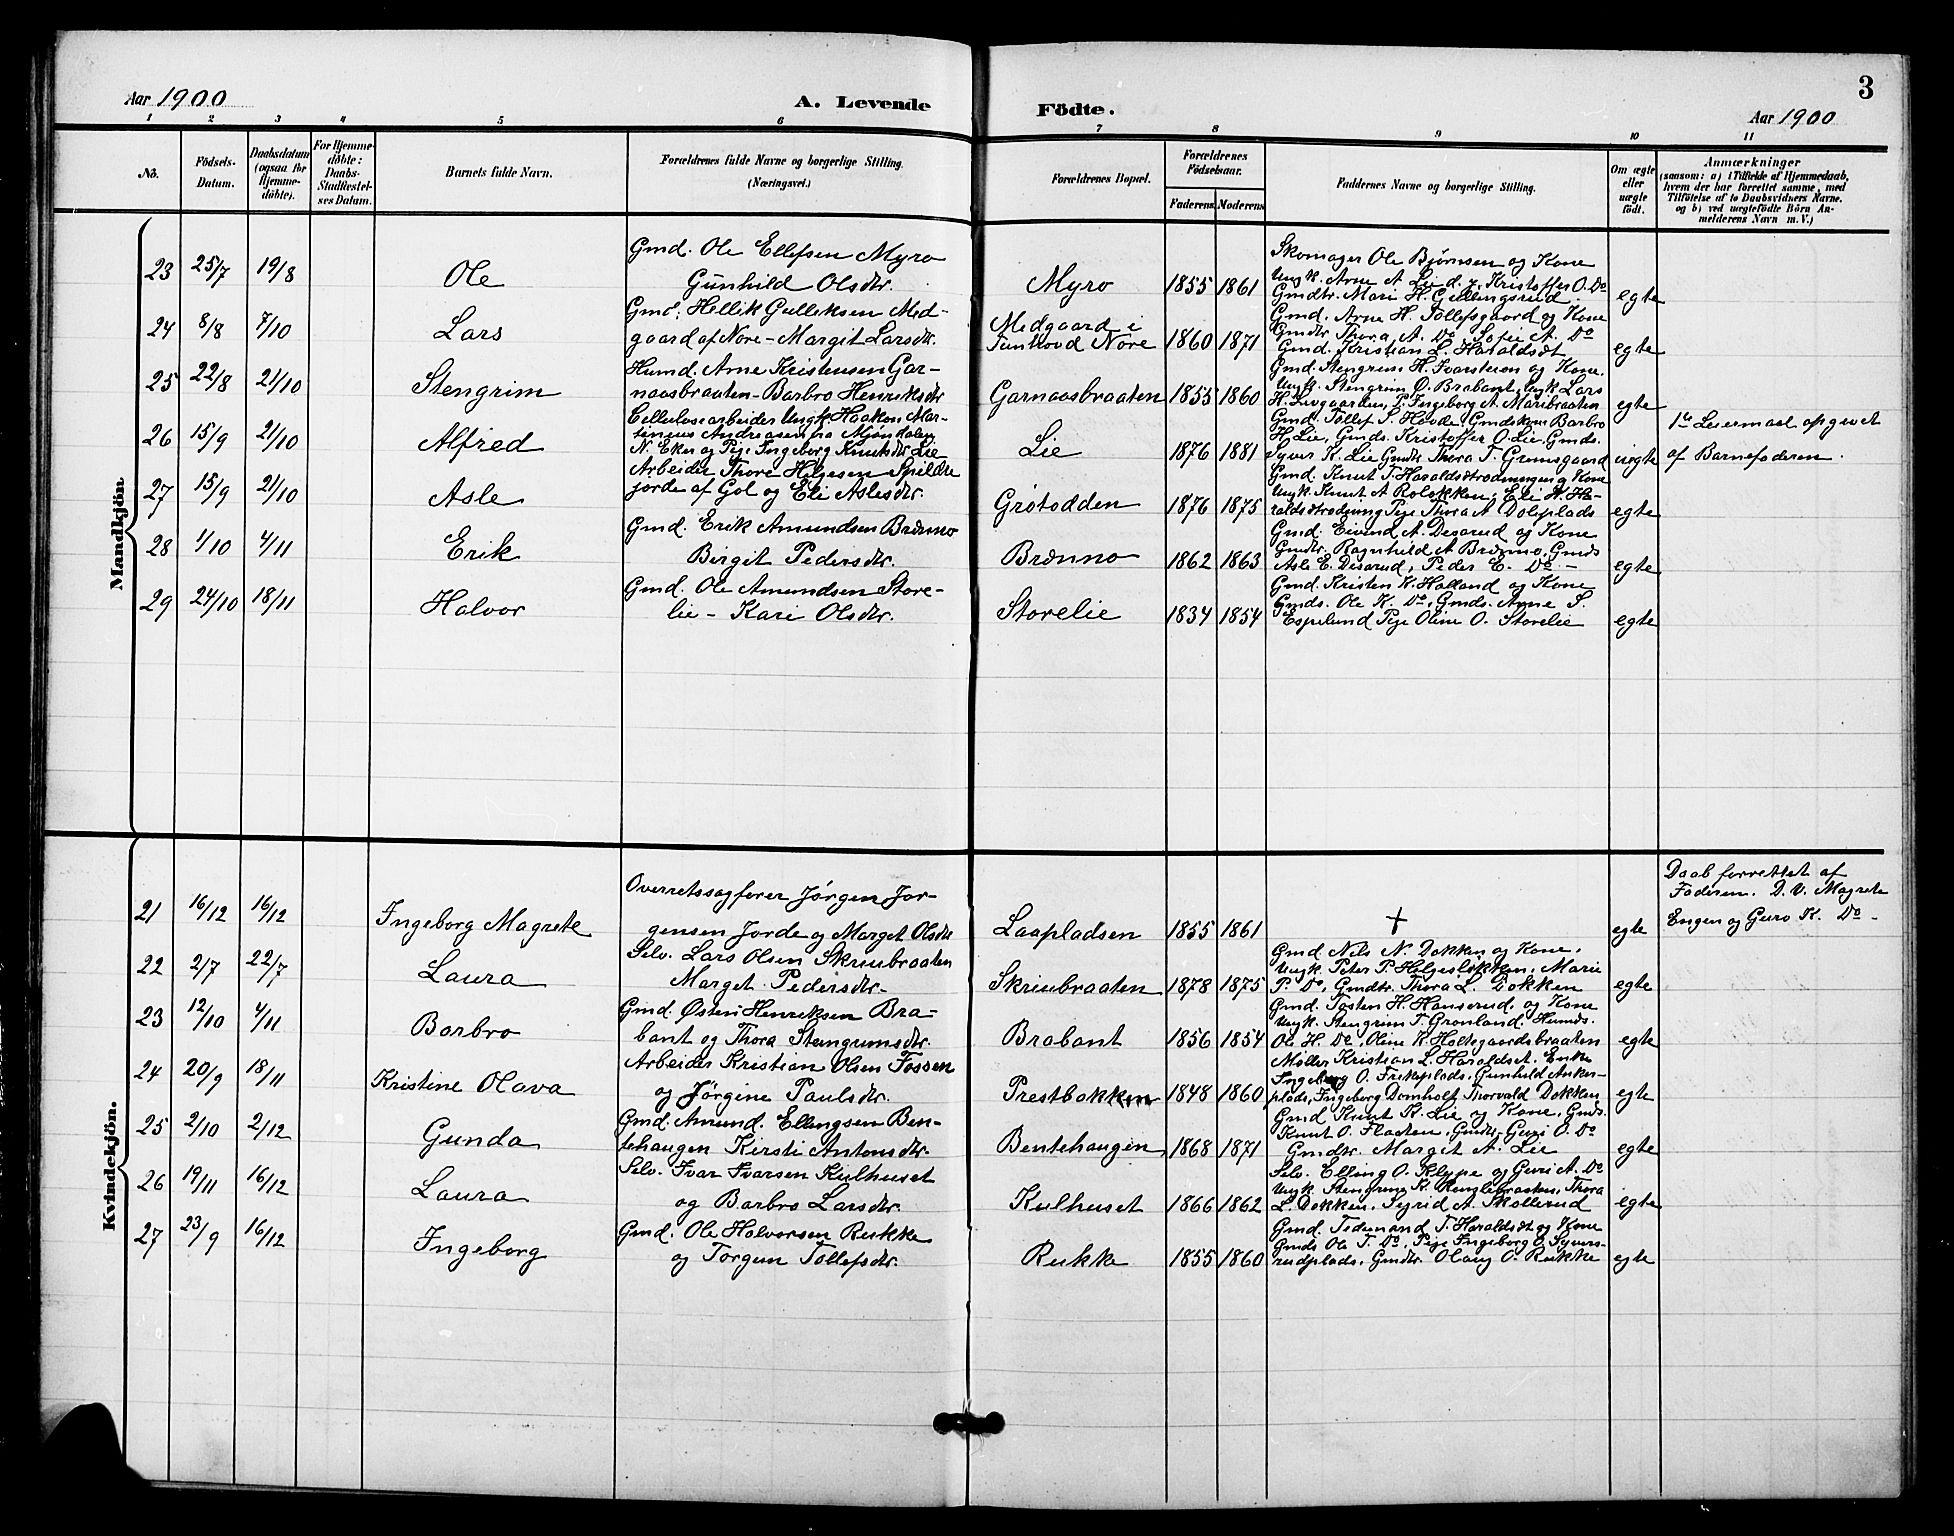 Aar 1900
A. Levende
Födte.
3
Aar 1900
1 2 3 4 5 6 7 8 9 10 11
No.
Födsels-
Datum.
Daabsdatum
(ogsaa for
Hjemme-
döbte).
For Hjemme-
döbte:
Daabs-
Stadfæstel-
ses Datum.
Barnets fulde Navn.
Forældrenes fulde Navne og borgerlige Stilling.
(Næringsvei.)
Forældrenes Bopæl.
Forældrenes
Födselsaar.
Faderens. Moderens.
Faddernes Navne og borgerlige Stilling.
Om ægte
eller
uægte
födt.
Anmærkninger
(saasom: a) i Tilfælde af Hjemmedaab,
hvem der har forrettet samme, med
Tilföielse af to Daabsvidners Navne.
og b) ved uægtefödte Börn An-
melderens Navn m. V.)
Mandkjön
23 25/7 19/8 Ole
Gmd. Ole Ellefsen Myro
Gunhild Olsdtr.
Myro 1855 1861
Skomager Ole Bjørnsen og Kone
Ungk. Arne A. Lie d. y. Kristoffer O. Do
Gmdtr. Mari H. Gullingsrud.
egte
24 8/8 7/10 Lars
Gmd. Hellik Gulleksen Med-
gaard af Nore - Margit Larsdtr.
Medgaard i
Tunhovd Nore 1860 1871
Gmd. Arne H. Tollefsgaard og Kone
Gmdtr. Thora A. Do Sofie A. Do
Gmd. Kristian L. Haraldsdt
egte
25 22/8 21/10 Stengrim
Husmd. Arne Kristensen Gar-
naasbraaten - Barbro Henriksdtr
Garnaasbraaten 1855 1860
Gmd. Stengrim H. Ivarsteen og Kone.
Ungk. Stengrim Ø. Brabant, Ungk Lars
H. Ivogaarden, P. Ingeborg A. Maribraaten
egte
26 15/9 21/10 Alfred
Cellulosearbeider Ungk. Haakon Mar-
tinius Andreasen fra Mjøndalen
N. Eker og Pige Ingeborg Knutsdtr Lie
Lie 1876 1881
Gmd. Tollef S. Hovde, Gmdskone Barbro
H. Lie, Gmds. Kristoffer O. Lie, Gmds.
Syver K. Lie Gmdtr. Thora T. Grimsgaard
uegte
1ste Leiermaal opgivet
af Barnefaderen.
27 15/9 21/10 Asle
Arbeider Thore Helgesen Spildre
jorde af Gol og Eli Aslesdtr.
Grøtodden 1876 1875
Gmd. Knut T. Haraldsdtrødningen og Kone
Ungk. Knut A Roløkken, Eli H. Ha-
raldsdtrødning Pige Thora A. Doleplads
egte
28 1/10 4/11 Erik
Gmd. Erik Amundsen Brænno
Birgit Pedersdtr.
Brænno 1862 1863
Gmd. Eivind A. Desarud og Kone
Gmdtr. Ragnhild A Brænno, Gmds
Asle E. Desarud, Peder E. Do. -
egte
29 24/10 18/11 Halvor
Gmd. Ole Amundsen Store-
lie - Kari Olsdtr.
Storelie 1834 1854
Gmd. Kristen K. Halland og Kone
Gmds. Ole K. Do, Gmds. Arne S.
Espelund Pige Oline O. Storelie
egte
Kvindekjön.
21 16/12 16/12 Ingeborg Magrete
Overretssagfører Jørgen Jør-
gensen Jorde og Marget Olsdtr
Laapladsen 1855 1861
+
egte
Daab forrettet af
Faderen. D. V. Magrete
Engen og Guro K. Do -
22 2/7 22/7 Laura
Selv. Lars Olsen Skriubraaten
Marget Pedersdtr.
Skriubraaten 1878 1875
Gmd. Nils N. Dokken og Kone.
Ungk. Peter P. Helgesløkken, Marie
P. Do, Gmdtr. Thora L. Dokken
egte
23 12/10 4/11 Barbro
Gmd. Østen Henriksen Bra-
bant og Thora Stengrimsdtr.
Brabant 1856 1854
Gmd. Tosten H. Hanserud, og Kone
Ungk. Stengrim T. Grønland, Husmds.
Ole H. Do, Oline K. Holtegaardsbraaten
egte
24 20/9 18/11 Kristine Olava
Arbeider Kristian Olsen Fossen
og Jørgine Paulsdtr.
Prestbakken 1848 1860
Møller Kristian L. Haraldset. Enke
Ingeborg O. Frikeplads, Gunhild Anker-
plads, Ingeborg Domholt Thorvald Dokken
egte
25 2/10 2/12 Gunda
Gmd. Amund. Ellingsen Ben-
tehaugen Kirsti Antonsdtr.
Bentehaugen 1868 1871
Gmd. Knut K. Lie og Kone, Gmds.
Knut O. Flaaten, Gmdtr. Guri O. Do
Gmdtr. Marget A. Lie
egte
26 19/11 16/12 Laura
Selv. Ivar Ivarsen Kulhuset
og Barbro Larsdtr.
Kulhuset 1866 1862
Selv. Elling O. Klype og Guri A. Do
Ungk. Stengrim K. Ringlebraaten, Thora
L. Dokken, Syrid A. Skollerud
egte
27 23/9 16/12 Ingeborg
Gmd. Ole Halvorsen Rukke
og Torgun Tollefsdtr.
Rukke 1855 1860
Gmd. Tidemand T. Haraldsdt og Kone
Gmds Ole T. Do, Pige Ingeborg O. Syvers-
rudplads, Gmdtr. Olaug O. Rukke
egte